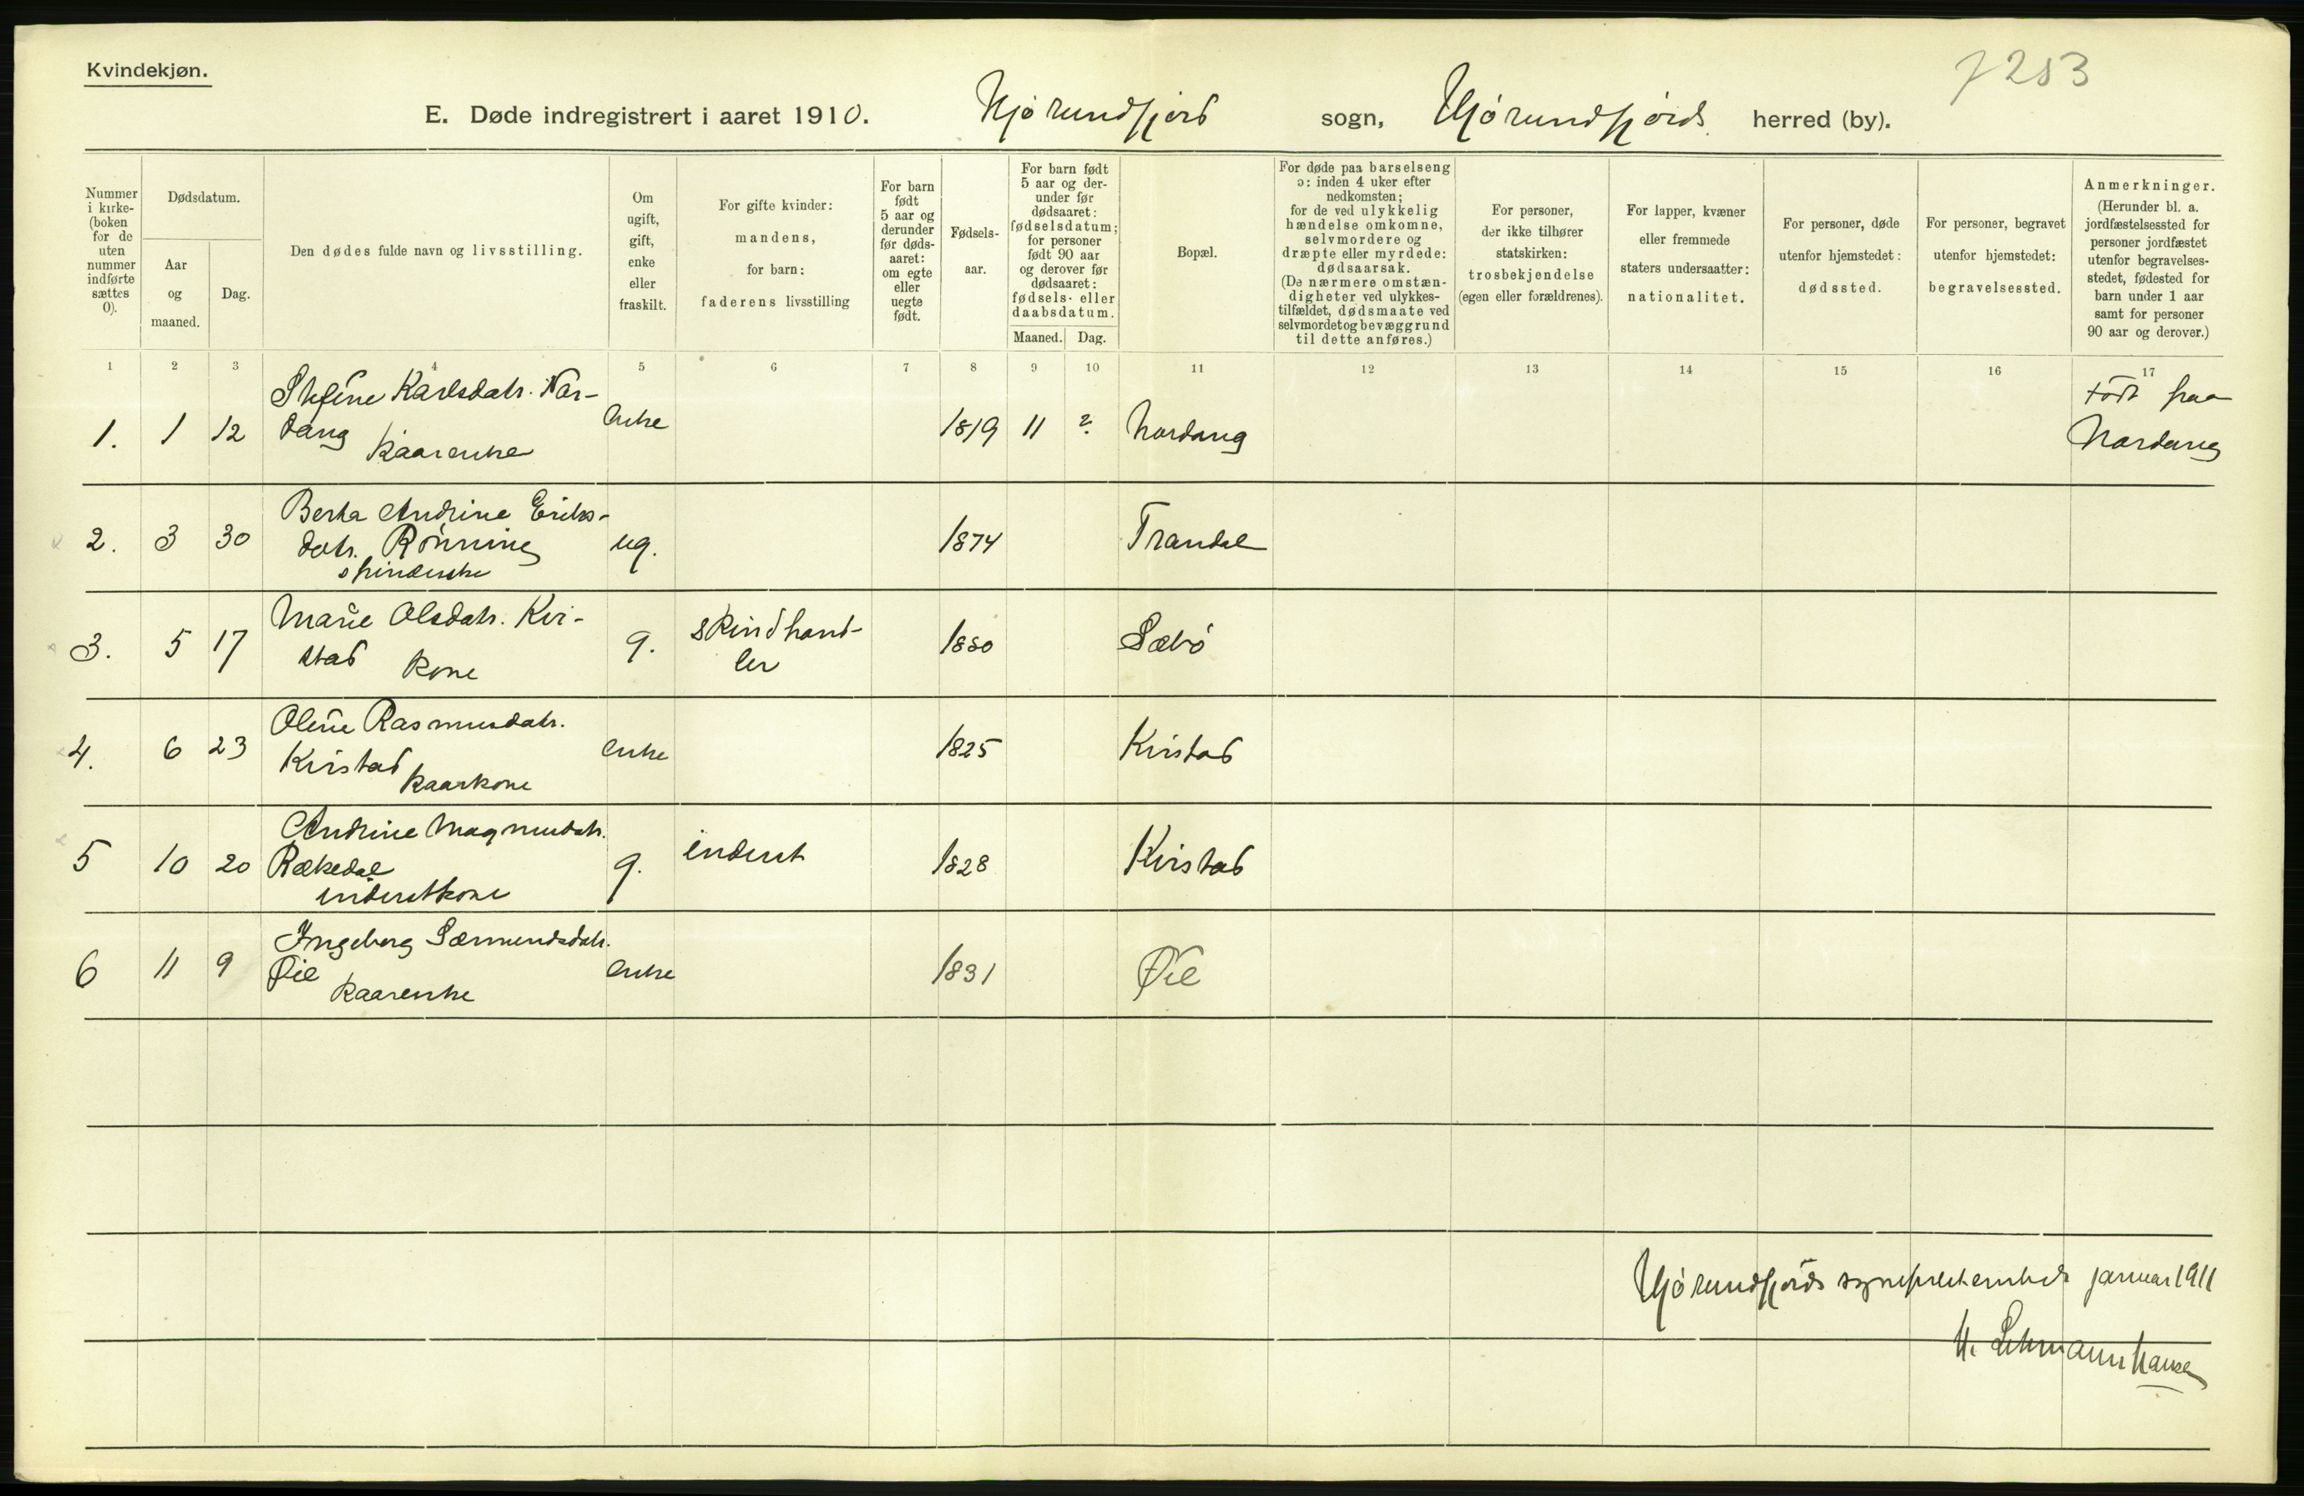 Kvindekjøn.
7283
E. Døde indregistrert i aaret 1910. Hjørundfjord sogn, Hjørundfjords herred (by).
Nummer i kirke- (boken for de uten nummer indførte sættes 0).
Dødsdatum.
Aar og maaned.
Dag.
Den dødes fulde navn og livsstilling.
Om ugift, gift, enke eller fraskilt.
For gifte kvinder: mandens, for barn: faderens livsstilling
For barn født 5 aar og derunder før døds- aaret: om egte eller uegte født.
Fødsels- aar.
For barn født 5 aar og der- under før dødsaaret: fødselsdatum; for personer født 90 aar og derover før dødsaaret: fødsels- eller daabsdatum.
Maaned. Dag.
Bopæl.
For døde paa barselseng ɔ: inden 4 uker efter nedkomsten; for de ved ulykkelig hændelse omkomne, selvmordere og dræpte eller myrdede: dødsaarsak. (De nærmere omstæn- digheter ved ulykkes- tilfældet, dødsmaate ved selvmord og bevæggrund til dette anføres.)
For personer, der ikke tilhører statskirken: trosbekjendelse (egen eller forældrenes).
For lapper, kvæner eller fremmede staters undersaatter: nationalitet.
For personer, døde utenfor hjemstedet: dødssted.
For personer, begravet utenfor hjemstedet: begravelsessted.
Anmerkninger. (Herunder bl. a. jordfæstelsessted for personer jordfæstet utenfor begravelses- stedet, fødested for barn under 1 aar samt for personer 90 aar og derover.)
1 2 3 4 5 6 7 8 9 10 11 12 13 14 15 16 17
1. 1 12 Stefine Karlsdatr. Nor- dang kaarenke enke 1819 11 ? Nordang Født paa Nordang
2. 3 30 Berta Andrine Eriks- datr. Rønning spinderske ug. 1874 Trandal
3. 5 17 Marie Olsdatr. Kvi- stad kone g. skindhand- ler 1880 Sæbø
4. 6 23 Oline Rasmusdatr. Kvistad kaarkone enke 1825 Kvistad
5 10 20 Andrine Magnusdatr. Rækedal inderstkone g. inderst 1828 Kvistad
6 11 9 Ingeborg Sæmundsdatr. Øie kaarenke enke 1831 Øie
Hjørundfjords sogneprestembede januar 1911
H. Lehmann Hansen